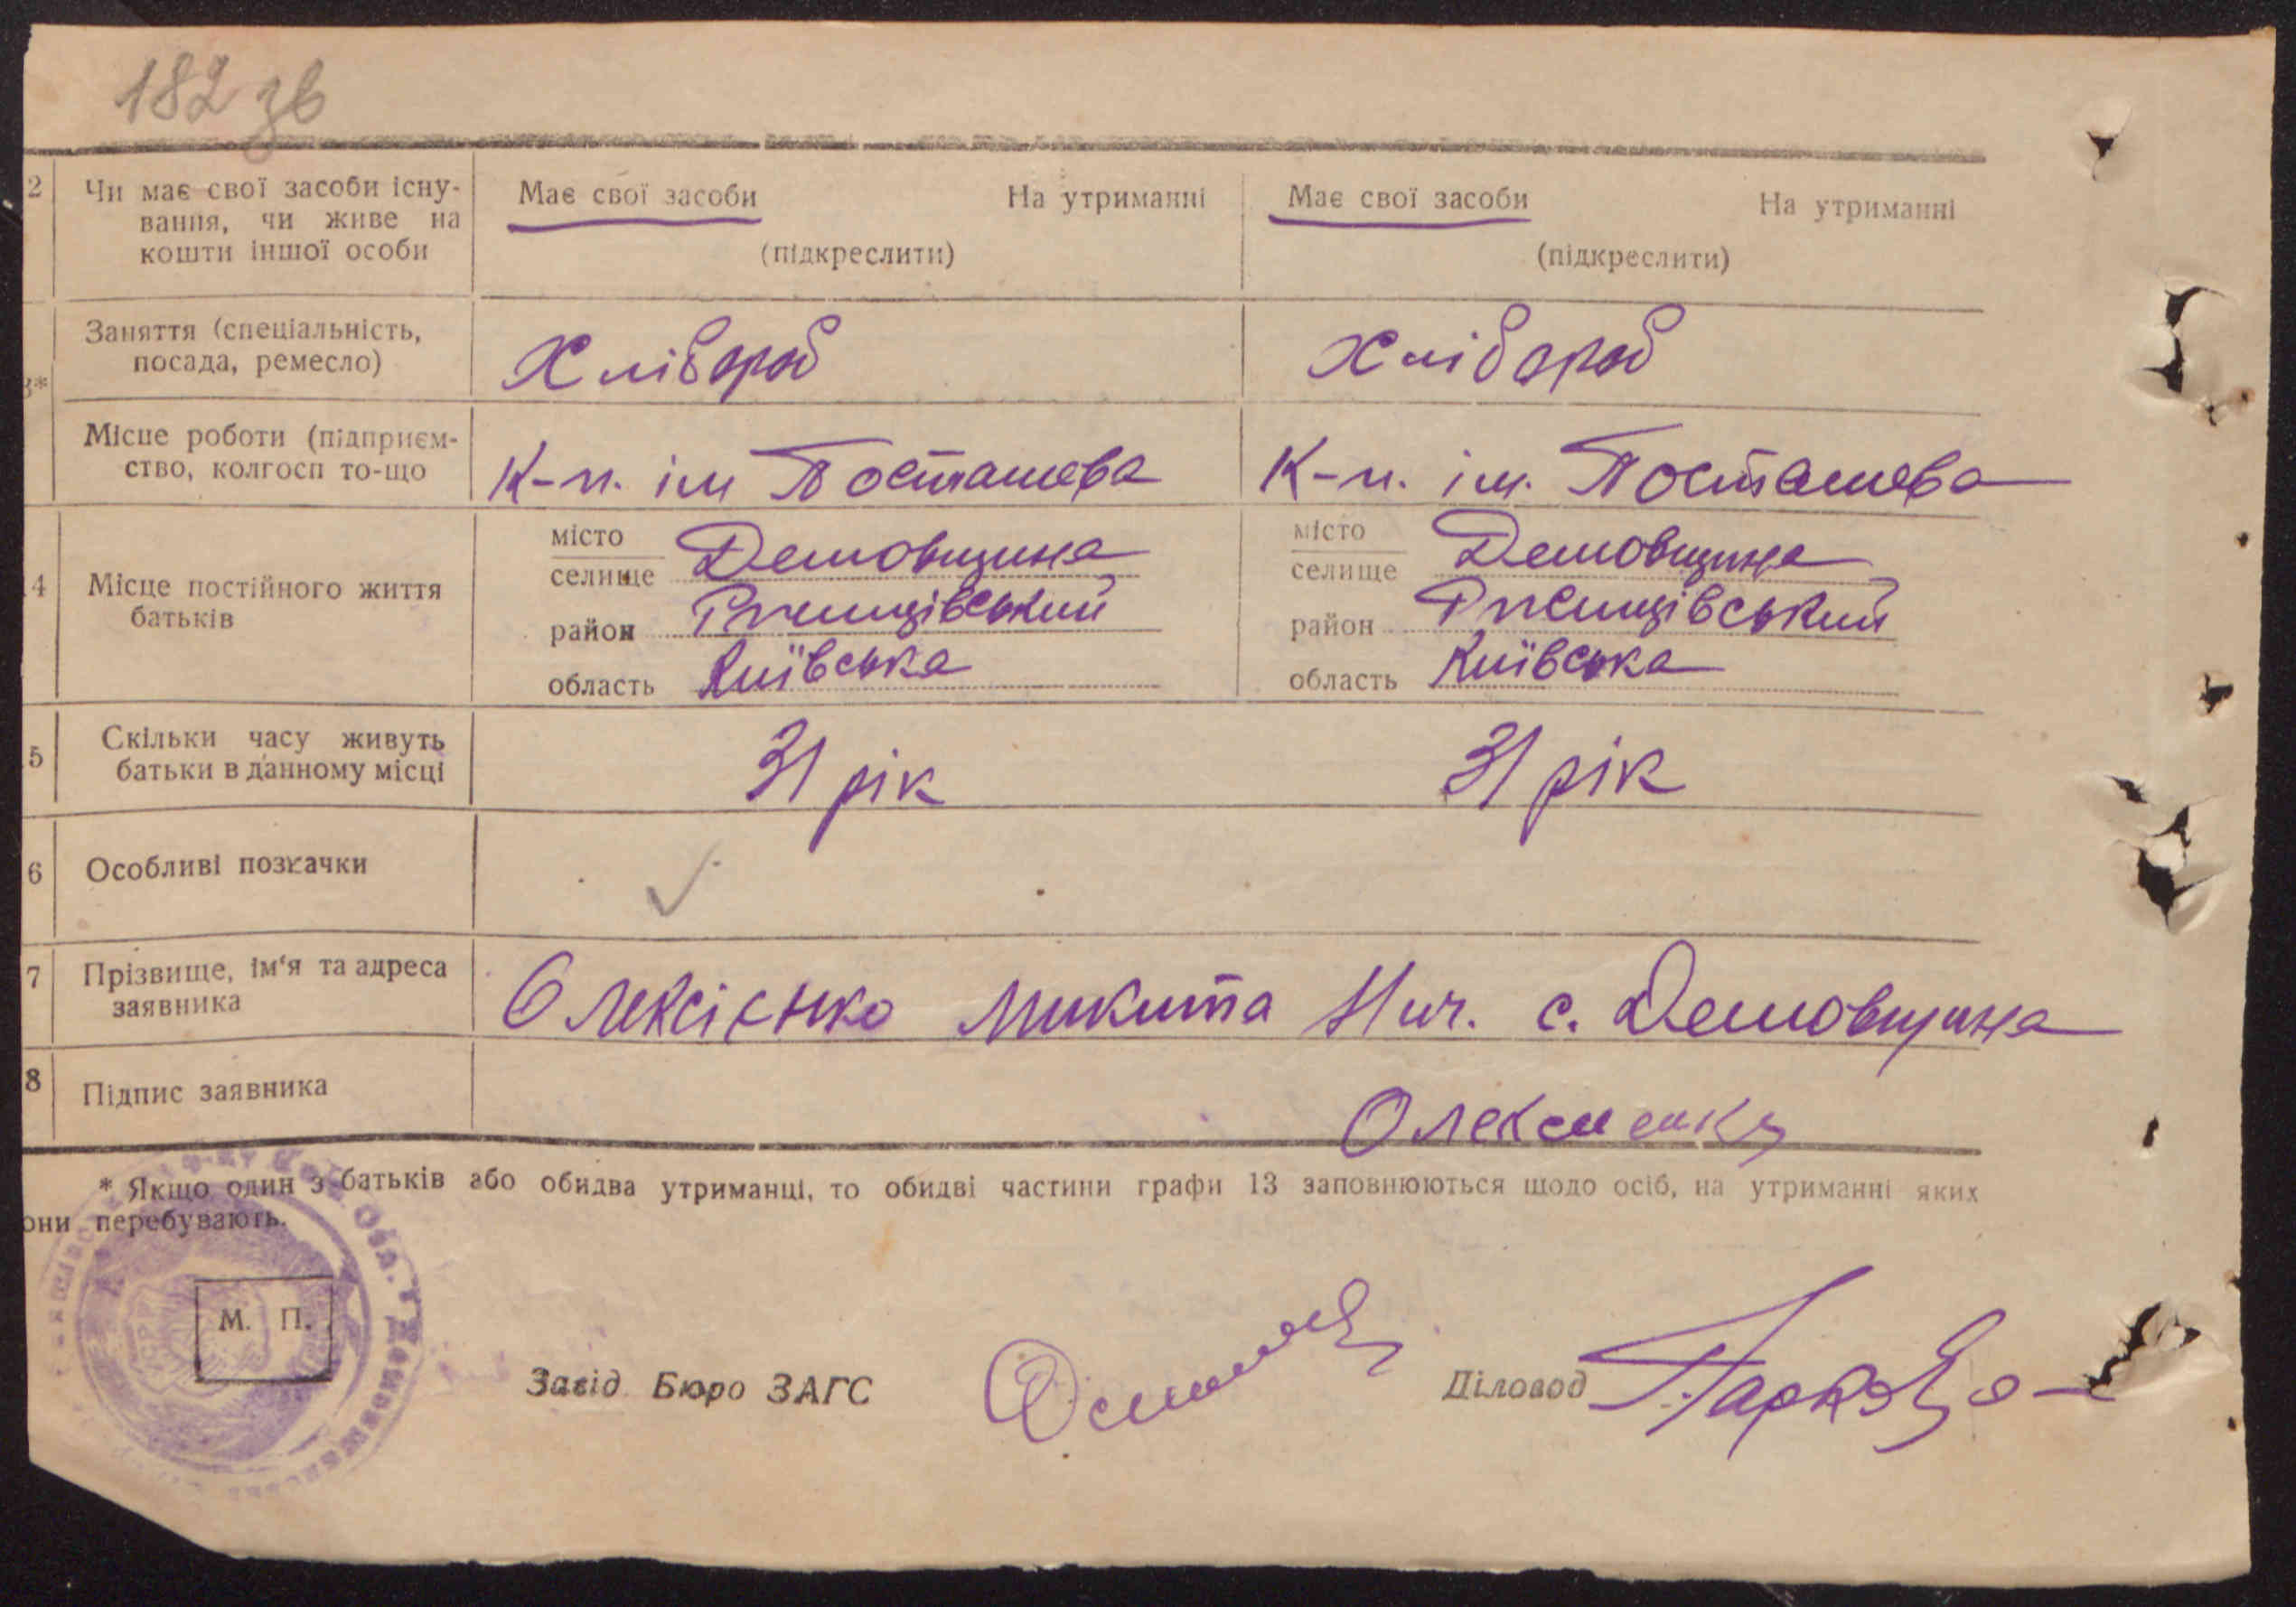 182 зв
2 Чи має свої засоби існу- Має свої засоби На утриманні Має свої засоби На утриманні
вання, чи живе на
кошти іншої особи (підкреслити) (підкреслити)
Заняття (спеціальність,
посада, ремесло) Хлібороб Хлібороб
3*
Місце роботи (підприєм-
ство, колгосп то-що К-п. ім Посташева К-п. ім. Посташева
місто місто
селище Демовщина селище Демовщина
4 Місце постійного життя
батьків район Ржищівський район Ржищівський
область Київська область Київська
5 Скільки часу живуть
батьки в данному місці 31 рік 31 рік
6 Особливі позначки
7 Прізвище, ім'я та адреса
заявника Олексієнко Микита Нич. с. Демовщина
8 Підпис заявника Олексиенко
* Якщо один з батьків або обидва утриманці, то обидві частини графи 13 заповнюються щодо осіб, на утриманні яких
они перебувають.
М. П.
Завід Бюро ЗАГС Діловод